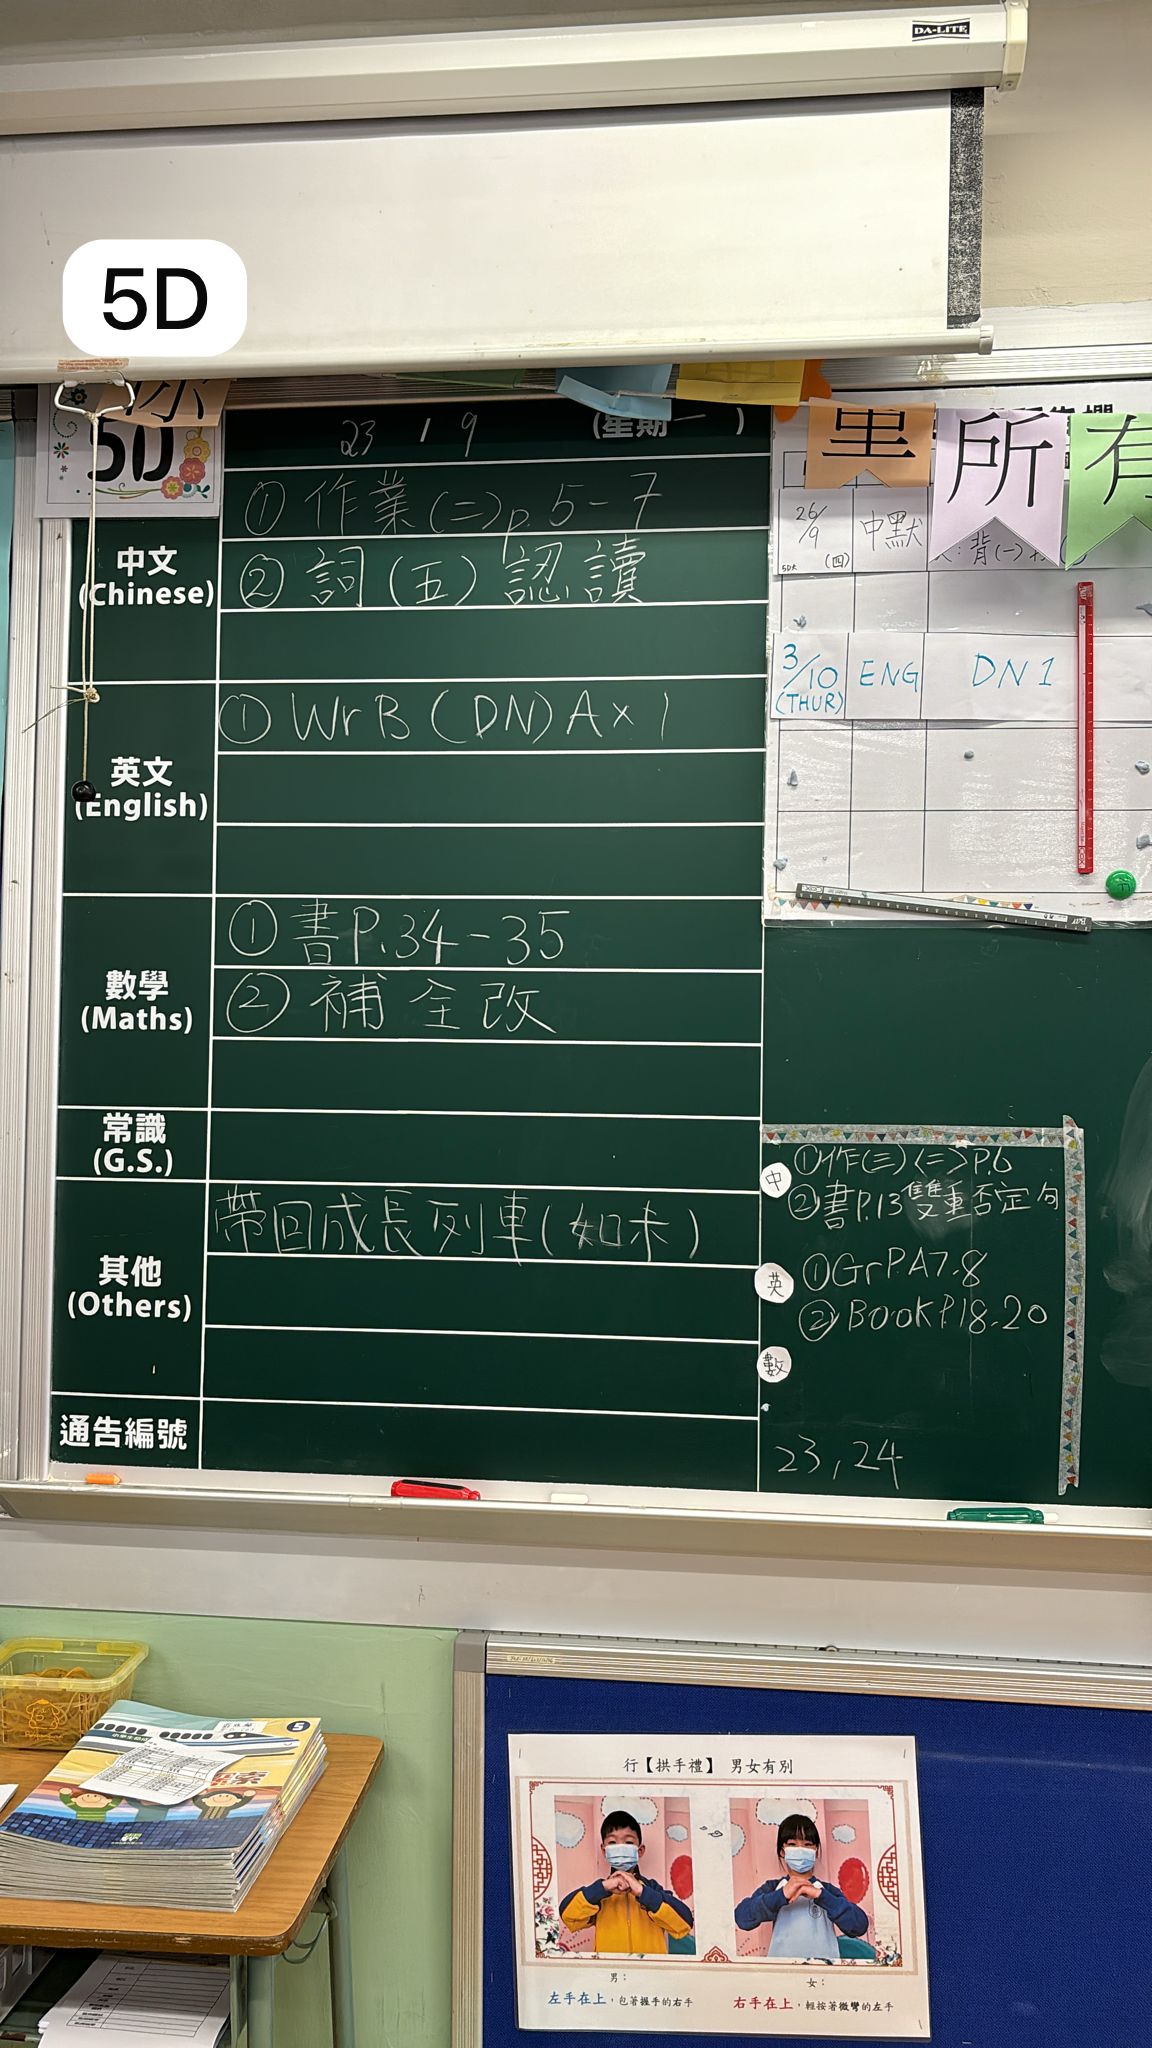 DA-LITE
5D
你
5D
23 / 9 (星期一)
中文
(Chinese)
① 作業(二)p.5-7
② 詞(五)認讀
英文
(English)
① WrB (DN) A×1
數學
(Maths)
① 書P.34-35
② 補全改
常識
(G.S.)
其他
(Others)
帶回成長列車(如未)
通告編號
里
所
有
26/9
(四)
中默
背(一)
3/10
(THUR)
ENG
DN 1
中
①作(三)<二>P.6
②書P.13雙重否定句
英
①GrP.A7.8
②BookP.18.20
數
23,24
5
行【拱手禮】 男女有別
男:
左手在上,包著握手的右手
女:
右手在上,輕按著微彎的左手